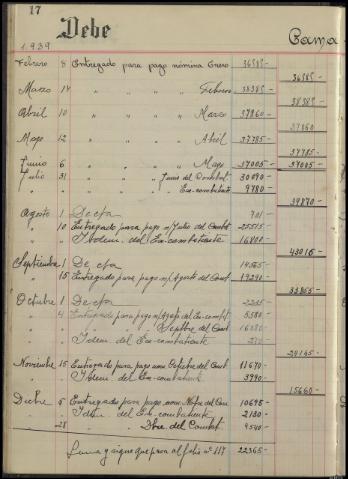 17
Debe
Cama
1.939
Febrero 8 Entregado para pago nómina Enero 36585-
36585-
Marzo 14 " " " " Febrero 38385-
38385-
Abril 10 " " " " Marzo 37860-
37860
Mayo 12 " " " " Abril 37785-
37785-
Junio 6 " " " " Mayo 37005- 37005-
Julio 31 " " " Junio del Combat. 30090-
" " " " " Ex-combatiente 9780-
39870-
Agosto 1 De cta 701-
" 10 Entregado para pago n/Julio del Combt 25515-
" " Idem del Ex-combatiente 16800-
43016-
Septiembre 1 De cta
" 15 Entregado para pago n/Agosto del Comt
Octubre 1 De cta
" 4 Entregado para pago n/Agto del Ex-combt 5580-
" " " " Septbre del Comt
" " Idem del Ex-combatiente 270-
24165-
Noviembre 15 Entregado para pago nom Octubre del Comt 11670-
" " Idem del Ex-combatiente 3990-
15660-
Dicbre 5 Entregado para pago nom Nobre del Com 10695-
" " Idem del Ex-combatiente 2130-
" 28 " " Dbre del Combat. 9540-
Suma y sigue que pasa al folio nº 117 22365-